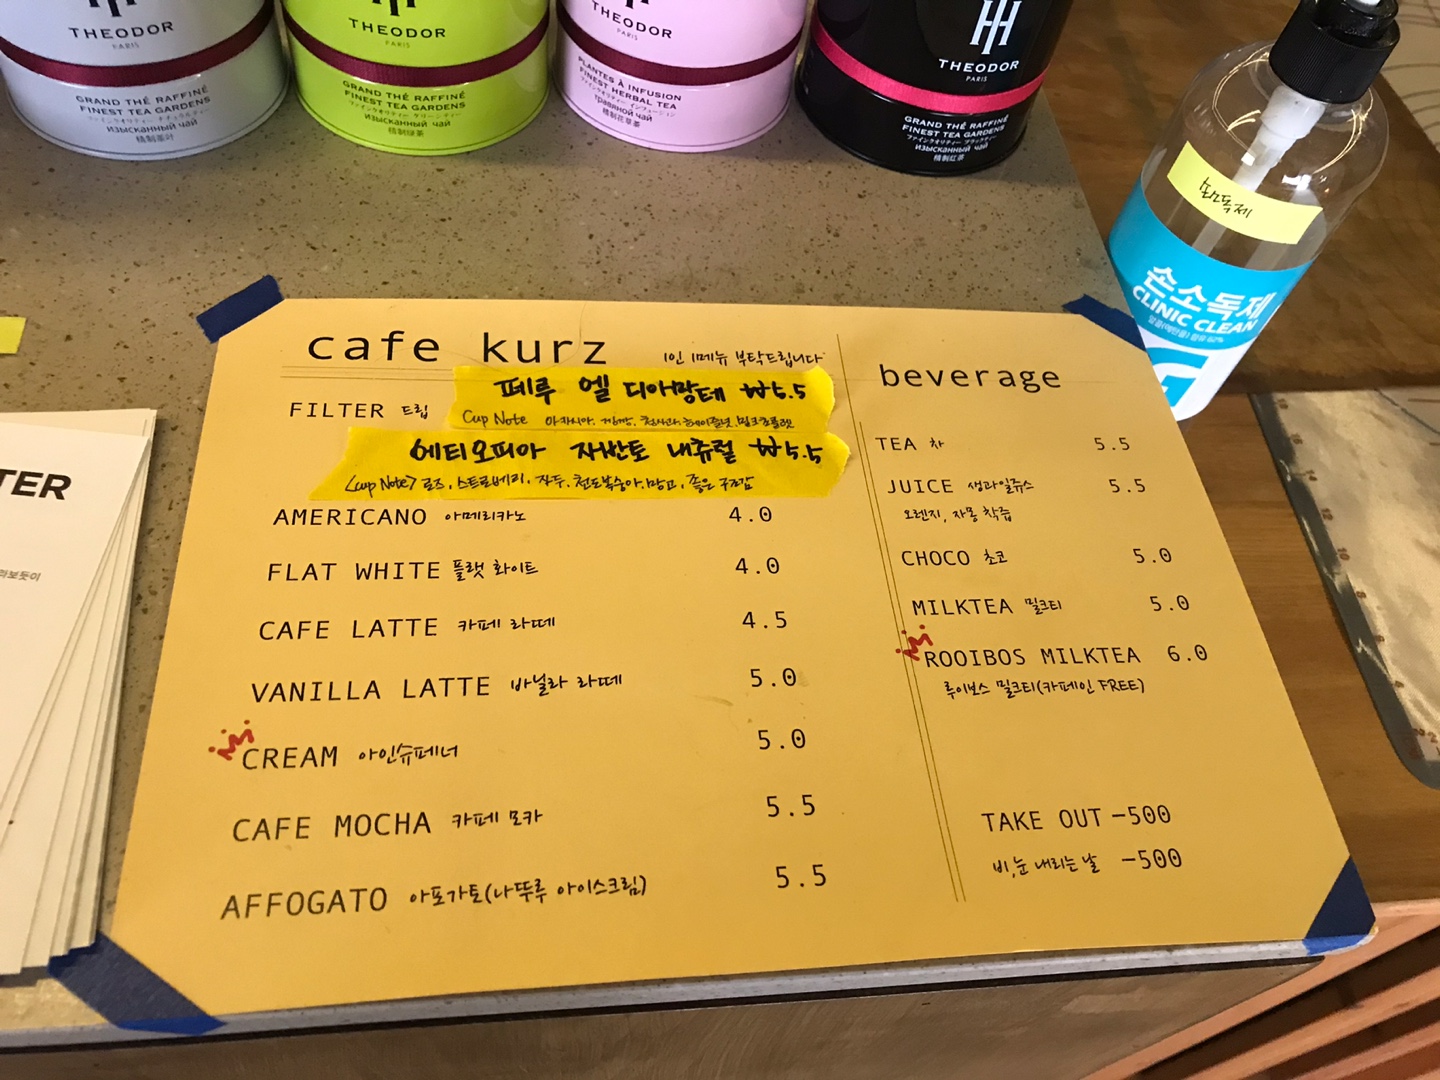 THEODOR
PARIS
GRAND THÉ RAFFINÉ
FINEST TEA GARDENS
ИЗЫСКАННЫЙ ЧАЙ
精制茶叶
THEODOR
PARIS
GRAND THÉ RAFFINÉ
FINEST TEA GARDENS
ИЗЫСКАННЫЙ ЧАЙ
精制绿茶
THEODOR
PARIS
PLANTES À INFUSION
FINEST HERBAL TEA
травяной чай
精制花草茶
THEODOR
PARIS
GRAND THÉ RAFFINÉ
FINEST TEA GARDENS
ИЗЫСКАННЫЙ ЧАЙ
精制红茶
손소독제
손소독제
CLINIC CLEAN
cafe kurz
1인 1메뉴 부탁드립니다
FILTER 드립
페루 엘 디아망테 ₩5.5
Cup Note 아카시아, 헤이즐넛, 밀크초콜릿
에티오피아 자반토 내츄럴 ₩5.5
<Cup Note> 로즈, 스트로베리, 자두, 천도복숭아, 망고, 좋은 구조감
AMERICANO 아메리카노 4.0
FLAT WHITE 플랫 화이트 4.0
CAFE LATTE 카페 라떼 4.5
VANILLA LATTE 바닐라 라떼 5.0
CREAM 아인슈페너 5.0
CAFE MOCHA 카페 모카 5.5
AFFOGATO 아포가토(나뚜루 아이스크림) 5.5
beverage
TEA 차 5.5
JUICE 생과일쥬스 5.5
오렌지, 자몽 착즙
CHOCO 초코 5.0
MILKTEA 밀크티 5.0
ROOIBOS MILKTEA 6.0
루이보스 밀크티(카페인 FREE)
TAKE OUT -500
비,눈 내리는 날 -500
TER
라보듯이